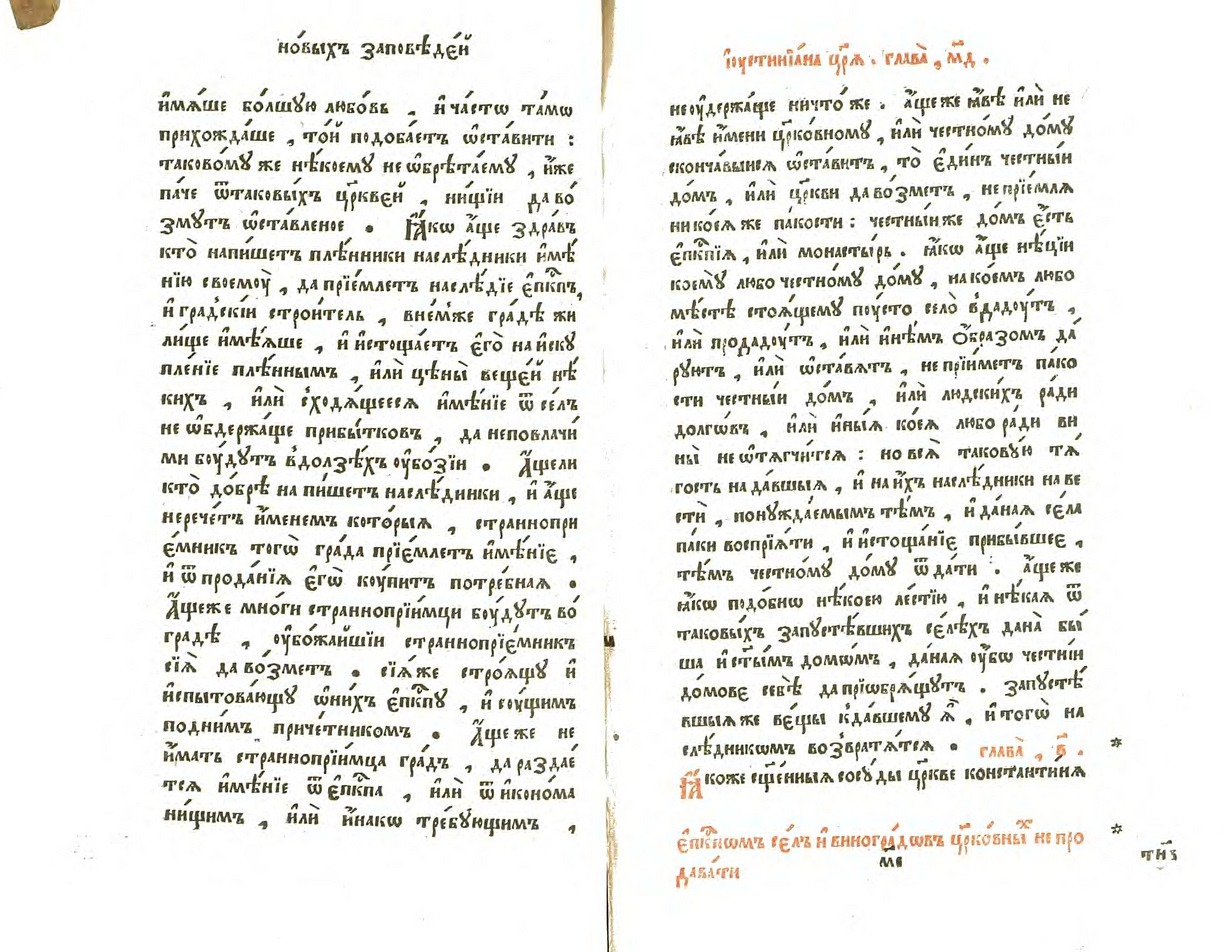 но́выхъ заповѣде́й
и҆мѧ́ше бо́лшую любо́вь , и҆ ча́стѡ та́мѡ
прихожда́ше , то́й подоба́етъ ѡ҆ста́вити :
таково́мꙋ же нѣ́коемꙋ не ѡ҆брѣта́емꙋ , и҆́же
па́че ѿ таковы́хъ цр҃кве́й , ни́щїи да во́
змꙋтъ ѡ҆ставле́ное . Ꙗ҆́кѡ а҆́ще здра́въ
кто̀ напи́шетъ плѣ́нники наслѣ́дники и҆мѣ́
нїю своемоу̀ , да прїе́млетъ наслѣ́дїе є҆пⷭ҇кпъ,
и҆ гра́дскїи строи́тель , в не́мже гра́дѣ жи
ли́ще и҆мѣ́ѧше , и҆ и҆стоща́етъ є҆го̀ на и҆скꙋ
пле́нїе плѣ́ннымъ , и҆лѝ цѣны̀ веще́й нѣ́
кихъ , и҆лѝ с̾ходѧ́щеесѧ и҆мѣ́нїе ѿ се́лъ
не ѡ҆бдержа́ще прибы́тковъ , да не повлачи́
ми бꙋ́дꙋтъ в̾долзѣ́хъ оу҆бо́зїи . А҆́ще ли
кто̀ до́брѣ напи́шетъ наслѣ́дники , и҆ а҆́ще
не рече́тъ и҆́менемъ кото́рыѧ , страннопрї
е́мникъ тогѡ̀ гра́да прїе́млетъ и҆мѣ́нїе ,
и҆ ѿ прода́нїѧ є҆гѡ̀ коу́питъ потре́бнаѧ .
А҆́ще же мно́ги страннопрїи́мци боу́дꙋтъ во
гра́дѣ , оу҆бо́жайшїи страннопрїе́мникъ
сїѧ̀ да во́зметъ . сїѧ́ же строѧ́щꙋ и҆
и҆спытова́ющꙋ ѡ҆ ни́хъ є҆пⷭ҇кпꙋ , и҆ сꙋ́щимъ
под ни́мъ приче́тникомъ . А҆́ще же не
и҆́мать страннопрїи́мца гра́дъ , да раздае́
тсѧ и҆мѣ́нїе ѿ є҆пⷭ҇кпа , и҆лѝ ѿ и҆коно́ма
ни́щимъ , и҆лѝ и҆́накѡ тре́бꙋющимъ ,
І҆оустинїа́на цр҃ѧ̀ . глава̀ , м҃д .
не оу҆держа́ще ничто́ же . а҆́ще же ꙗ҆́вѣ и҆лѝ не
ꙗ҆́вѣ и҆́мени цр҃ко́вномꙋ , и҆лѝ че́стномꙋ до́мꙋ
сконча́выисѧ ѡ҆ста́витъ , то̀ є҆ди́нъ че́стный
до́мъ , и҆лѝ цр҃кви да во́зметъ , не прїе́млѧ
ни коеѧ́ же па́кости : че́стный же до́мъ є҆́сть
є҆пⷭ҇кпїѧ , и҆лѝ монасты́рь . ꙗ҆́кѡ а҆́ще нѣ́цїи
коемꙋ̀ любо че́стномꙋ до́мꙋ , на ко́емъ любо
мѣ́стѣ стоѧ́щемꙋ поу́сто село̀ в̾дадоу́тъ ,
и҆лѝ продадоу́тъ , и҆лѝ и҆нѣ́мъ о҆́бразомъ да́
рꙋютъ , и҆лѝ ѡ҆ста́вѧтъ , не прїи́метъ па́ко
сти че́стный до́мъ , и҆лѝ людски́хъ ра́ди
долгѡ́въ , и҆лѝ и҆ны́ѧ коеѧ̀ любо ра́ди ви
ны̀ не ѡ҆тѧгчи́тсѧ : но всѧ̀ такову́ю тѧ́
гость на да́вшыѧ , и҆ на и҆́хъ наслѣ́дники наве
стѝ , понꙋжда́емымъ тѣ́мъ , и҆ да́наѧ се́ла
па́ки воспрїѧ́ти , и҆ и҆стоща́нїе прибы́вшее ,
тѣ́мъ че́стномꙋ до́мꙋ ѿда́ти . а҆́ще же
ꙗ҆́кѡ подо́бнѡ нѣ́коею ле́стїю , и҆ нѣ́каѧ ѿ
таковы́хъ запꙋстѣ́вшихъ се́лѣхъ дана̀ бы́
ша и҆ ст҃ы́мъ домѡ́мъ , да́наѧ оу҆́бѡ че́стнїи
до́мове себѣ̀ да прїѡбрѧ́щꙋтъ . запꙋстѣ́
вшыѧ же ве́щы к̾да́вшемꙋ ѧ҆̀ , и҆ тогѡ̀ на
слѣ́дникѡмъ возвратѧ́тсѧ . глава̀ , в҃ . *
Ꙗ҆́коже сщ҃е́нныѧ сосоу́ды цр҃кве константи́нѧ
є҆пⷭ҇кпѡмъ се́лъ и҆ виногра́дѡвъ цр҃ко́вныⷯ не про *
дава́ти
м҃е
тн҃з